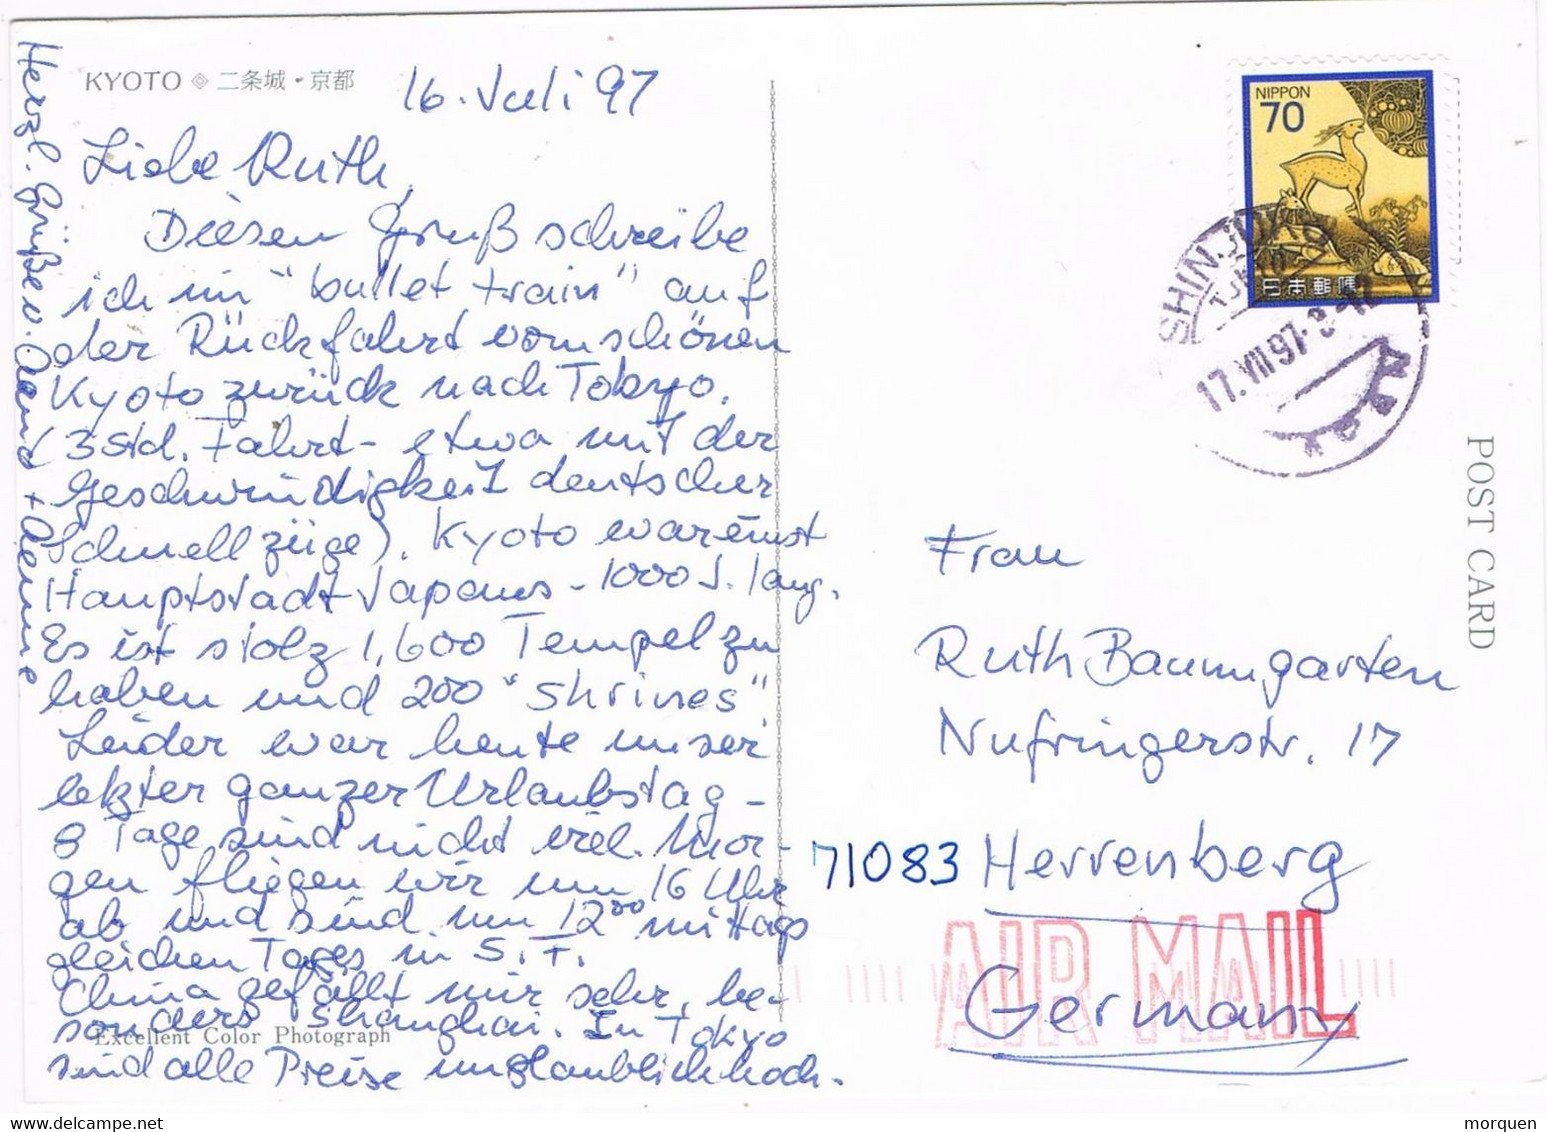 KYOTO 二条城・京都
16. Juli 97
Liebe Ruth,
Diesen Gruß schreibe
ich im "bullet train" auf
der Rückfahrt vom schönen
Kyoto zurück nach Tokyo.
(3 std. Fahrt - etwa mit der
Geschwindigkeit deutscher
Schnellzüge). Kyoto war einst
Hauptstadt Japans - 1000 J. lang.
Es ist stolz 1,600 Tempel zu
haben und 200 "shrines".
Leider war heute unser
letzter ganzer Urlaubstag -
8 Tage sind nicht viel. Mor-
gen fliegen wir um 16 Uhr
ab und sind um 12⁰⁰ mittags
gleichen Tages in S. F.
China gefällt mir sehr, be-
sonders Shanghai. In Tokyo
sind alle Preise unglaublich hoch.
Herzl. Grüße v.
Excellent Color Photograph
NIPPON
70
日本郵便
SHINJUKU
17.VII 97. 8-12
POST CARD
Frau
Ruth Baumgarten
Nufringerstr. 17
71083 Herrenberg
AIR MAIL
Germany
morquen